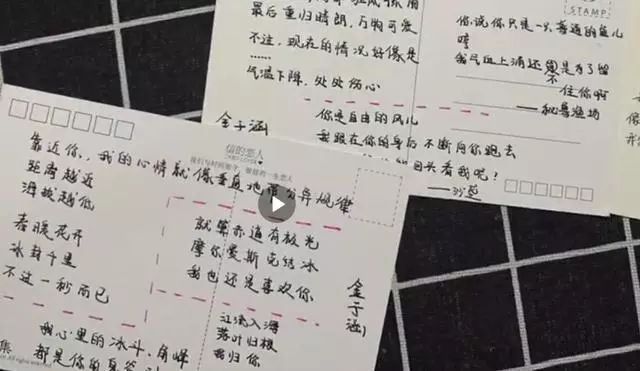 最后重归晴朗，万物可爱
不过，现在的情况好像是
……
气温下降，处处伤心
金子涵
STAMP
俗说你只是一只普通的鱼儿
哼
住你啊
你是自由的风儿
我跟在你的身后不断向你跑去
回头看我呢？
信的恋人
靠近你，我的心情就像垂直地带分异规律
距离越近
海拔越低
春暖花开
冰封千里
不过一秒而已
就算赤道有极光
摩尔曼斯克结冰
我也还是喜欢你
金子涵
江流入海
落叶归根
我归你
我心里的冰斗、角峰
都是你的
All rights reserved